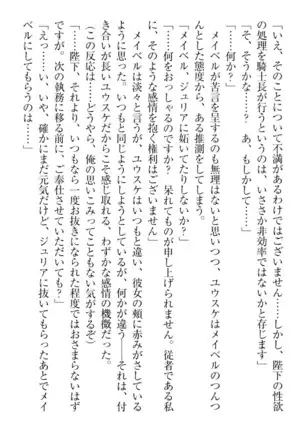 「いえ、そのことについて不満があるわけではございません……しかし、陛下の性欲
の処理を騎士長が行うというのは、いささか非効率ではないかと存じます」
「そ、そうかな……？　あ、もしかして……」
「……何か？」
　メイベルが苦言を呈するのも無理はないと思いつつ、ユウスケはメイベルのつんつ
んとした態度から、ある推測をしてしまう。
「メイベル、ジュリアに妬いてたりしないか？」
「……何をおっしゃるのですか？　呆れてものが申し上げられません。従者である私
に、そのような感情を抱く権利はございません」
　メイベルは淡々と言うが、ユウスケはいつもと違い、彼女の頬に赤みがさしている
ように思った。いつもと同じようにしようとしているが、何かが違う――それは、付
き合いが長いユウスケだからこそ感じ取れる、わずかな感情の機微だった。
（この反応は……どうやら、俺の思いこみってこともない気がするぞ）
「……陛下、それより、いつもなら一度お抜きになられた程度ではおさまらないはず
ですが。次の執務に移る前に、ご奉仕させていただいても？」
「えっ……い、いや、確かにまだ元気だけど、ジュリアに抜いてもらったあとでメイ
ベルにしてもらうのは……」